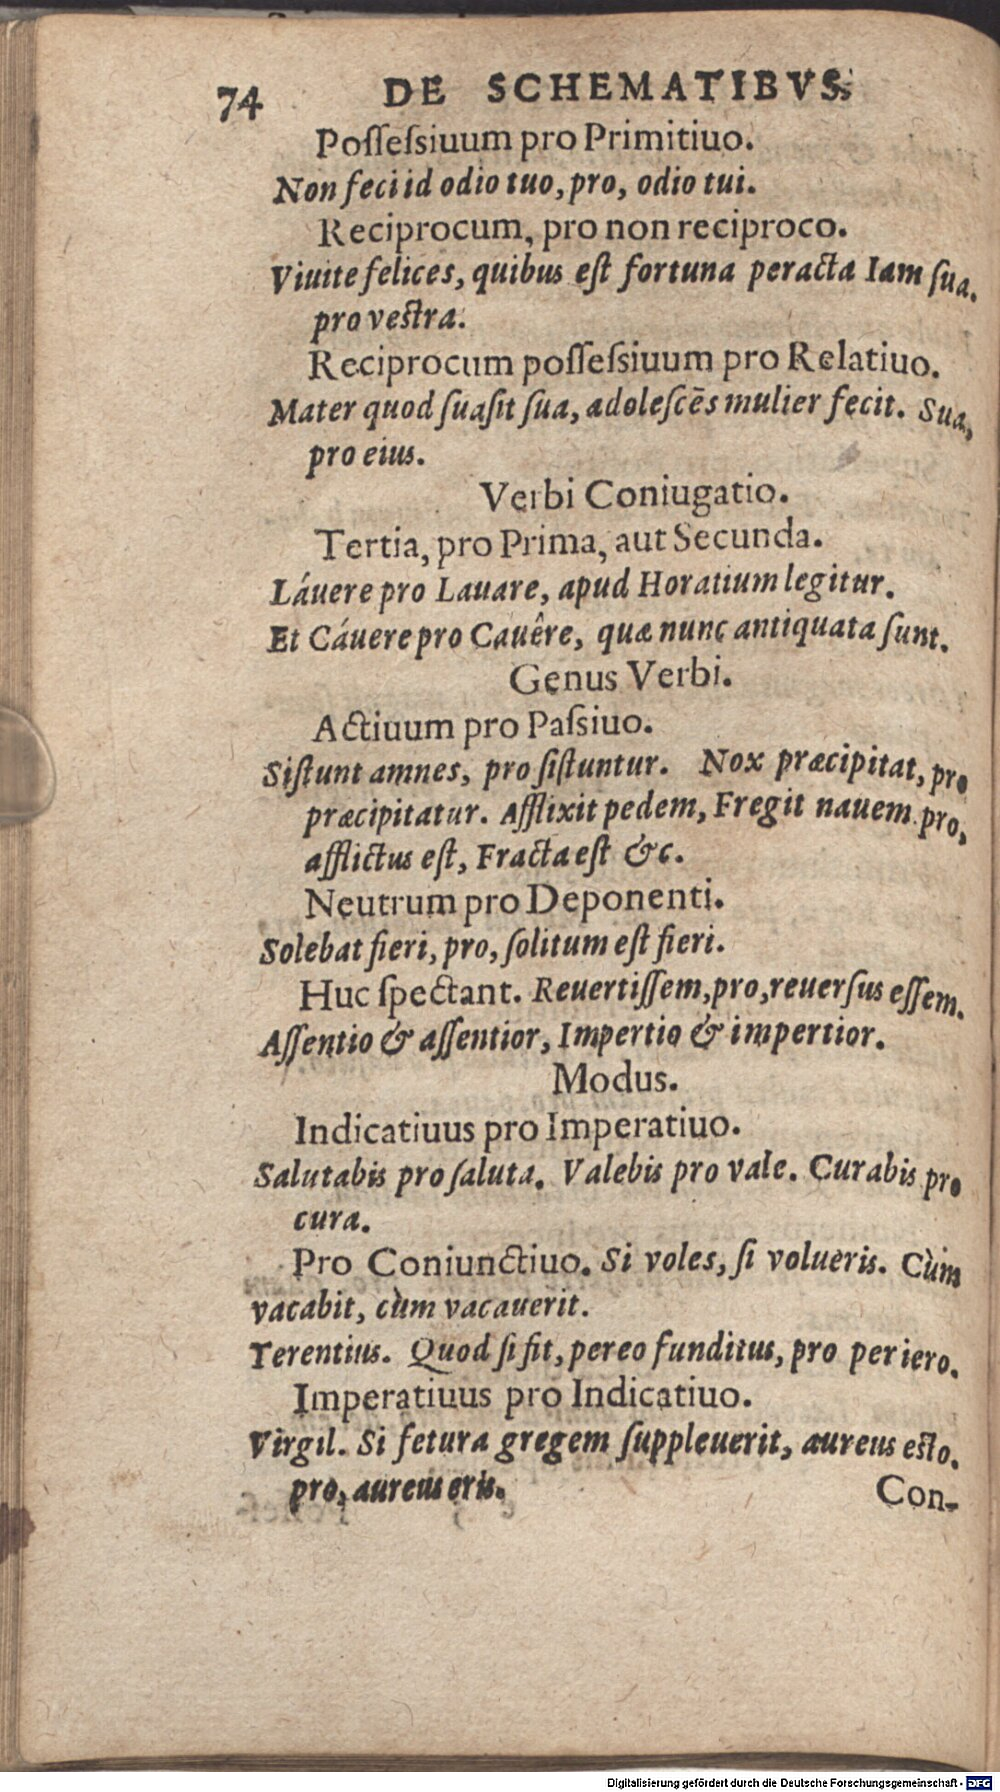 74 DE SCHEMATIBVS.
Poſſeſsiuum pro Primitiuo.
Non feci id odio tuo, pro, odio tui.
Reciprocum, pro non reciproco.
Viuite felices, quibus eſt fortuna peracta Iam ſua.
pro veſtra.
Reciprocum poſſeſsiuum pro Relatiuo.
Mater quod ſuaſit ſua, adoleſcēs mulier fecit. Sua,
pro eius.
Verbi Coniugatio.
Tertia, pro Prima, aut Secunda.
Láuere pro Lauare, apud Horatium legitur.
Et Cáuere pro Cauêre, quæ nunc antiquata ſunt.
Genus Verbi.
Actiuum pro Paſsiuo.
Siſtunt amnes, pro ſiſtuntur. Nox præcipitat, pro
præcipitatur. Afflixit pedem, Fregit nauem pro,
afflictus eſt, Fracta eſt &c.
Neutrum pro Deponenti.
Solebat fieri, pro, ſolitum eſt fieri.
Huc ſpectant. Reuertiſſem, pro, reuerſus eſſem.
Aſſentio & aſſentior, Impertio & impertior.
Modus.
Indicatiuus pro Imperatiuo.
Salutabis pro ſaluta. Valebis pro vale. Curabis pro
cura.
Pro Coniunctiuo. Si voles, ſi volueris. Cùm
vacabit, cùm vacauerit.
Terentius. Quod ſi fit, pereo funditus, pro periero.
Imperatiuus pro Indicatiuo.
Virgil. Si fetura gregem ſuppleuerit, aureus eſto.
pro, aureus eris. Con-
Digitalisierung gefördert durch die Deutsche Forschungsgemeinschaft - DFG